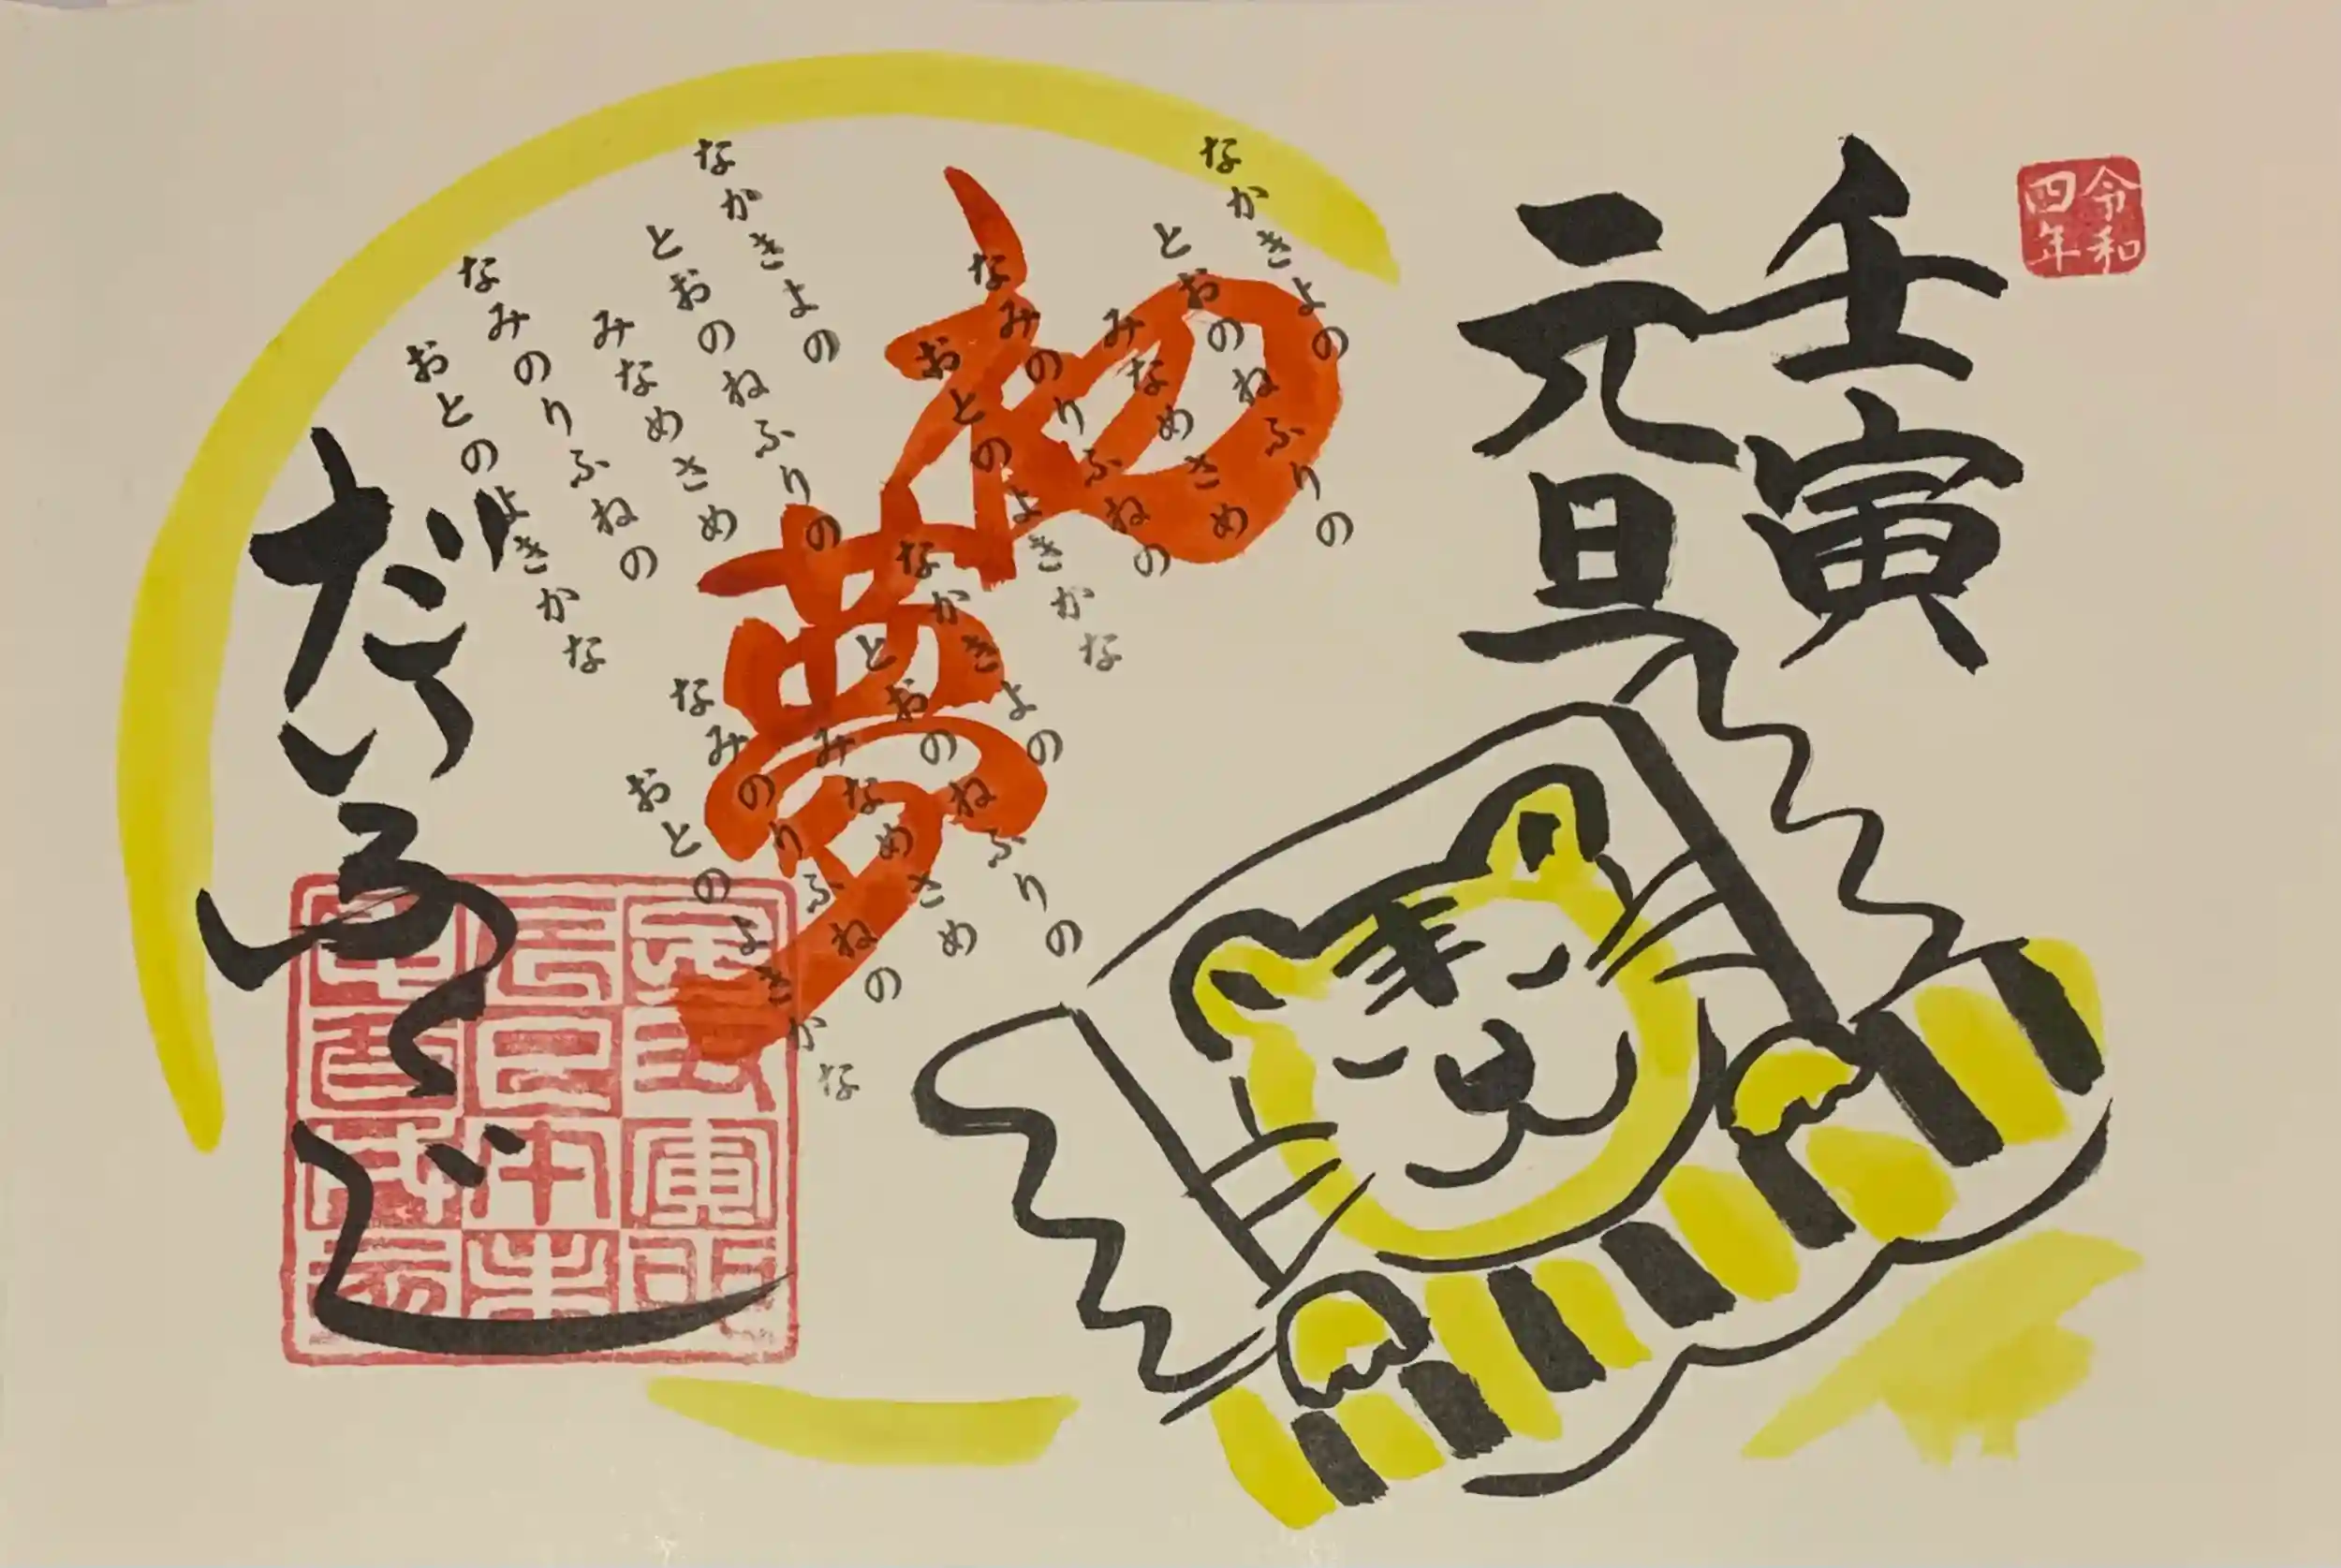 令和
四年
壬寅
元旦
初夢
なかきよの
とおのねふりの
みなめさめ
なみのりふねの
おとのよきかな
なかきよの
とおのねふりの
みなめさめ
なみのりふねの
おとのよきかな
なかきよの
とおのねふりの
みなめさめ
なみのりふねの
おとのよきかな